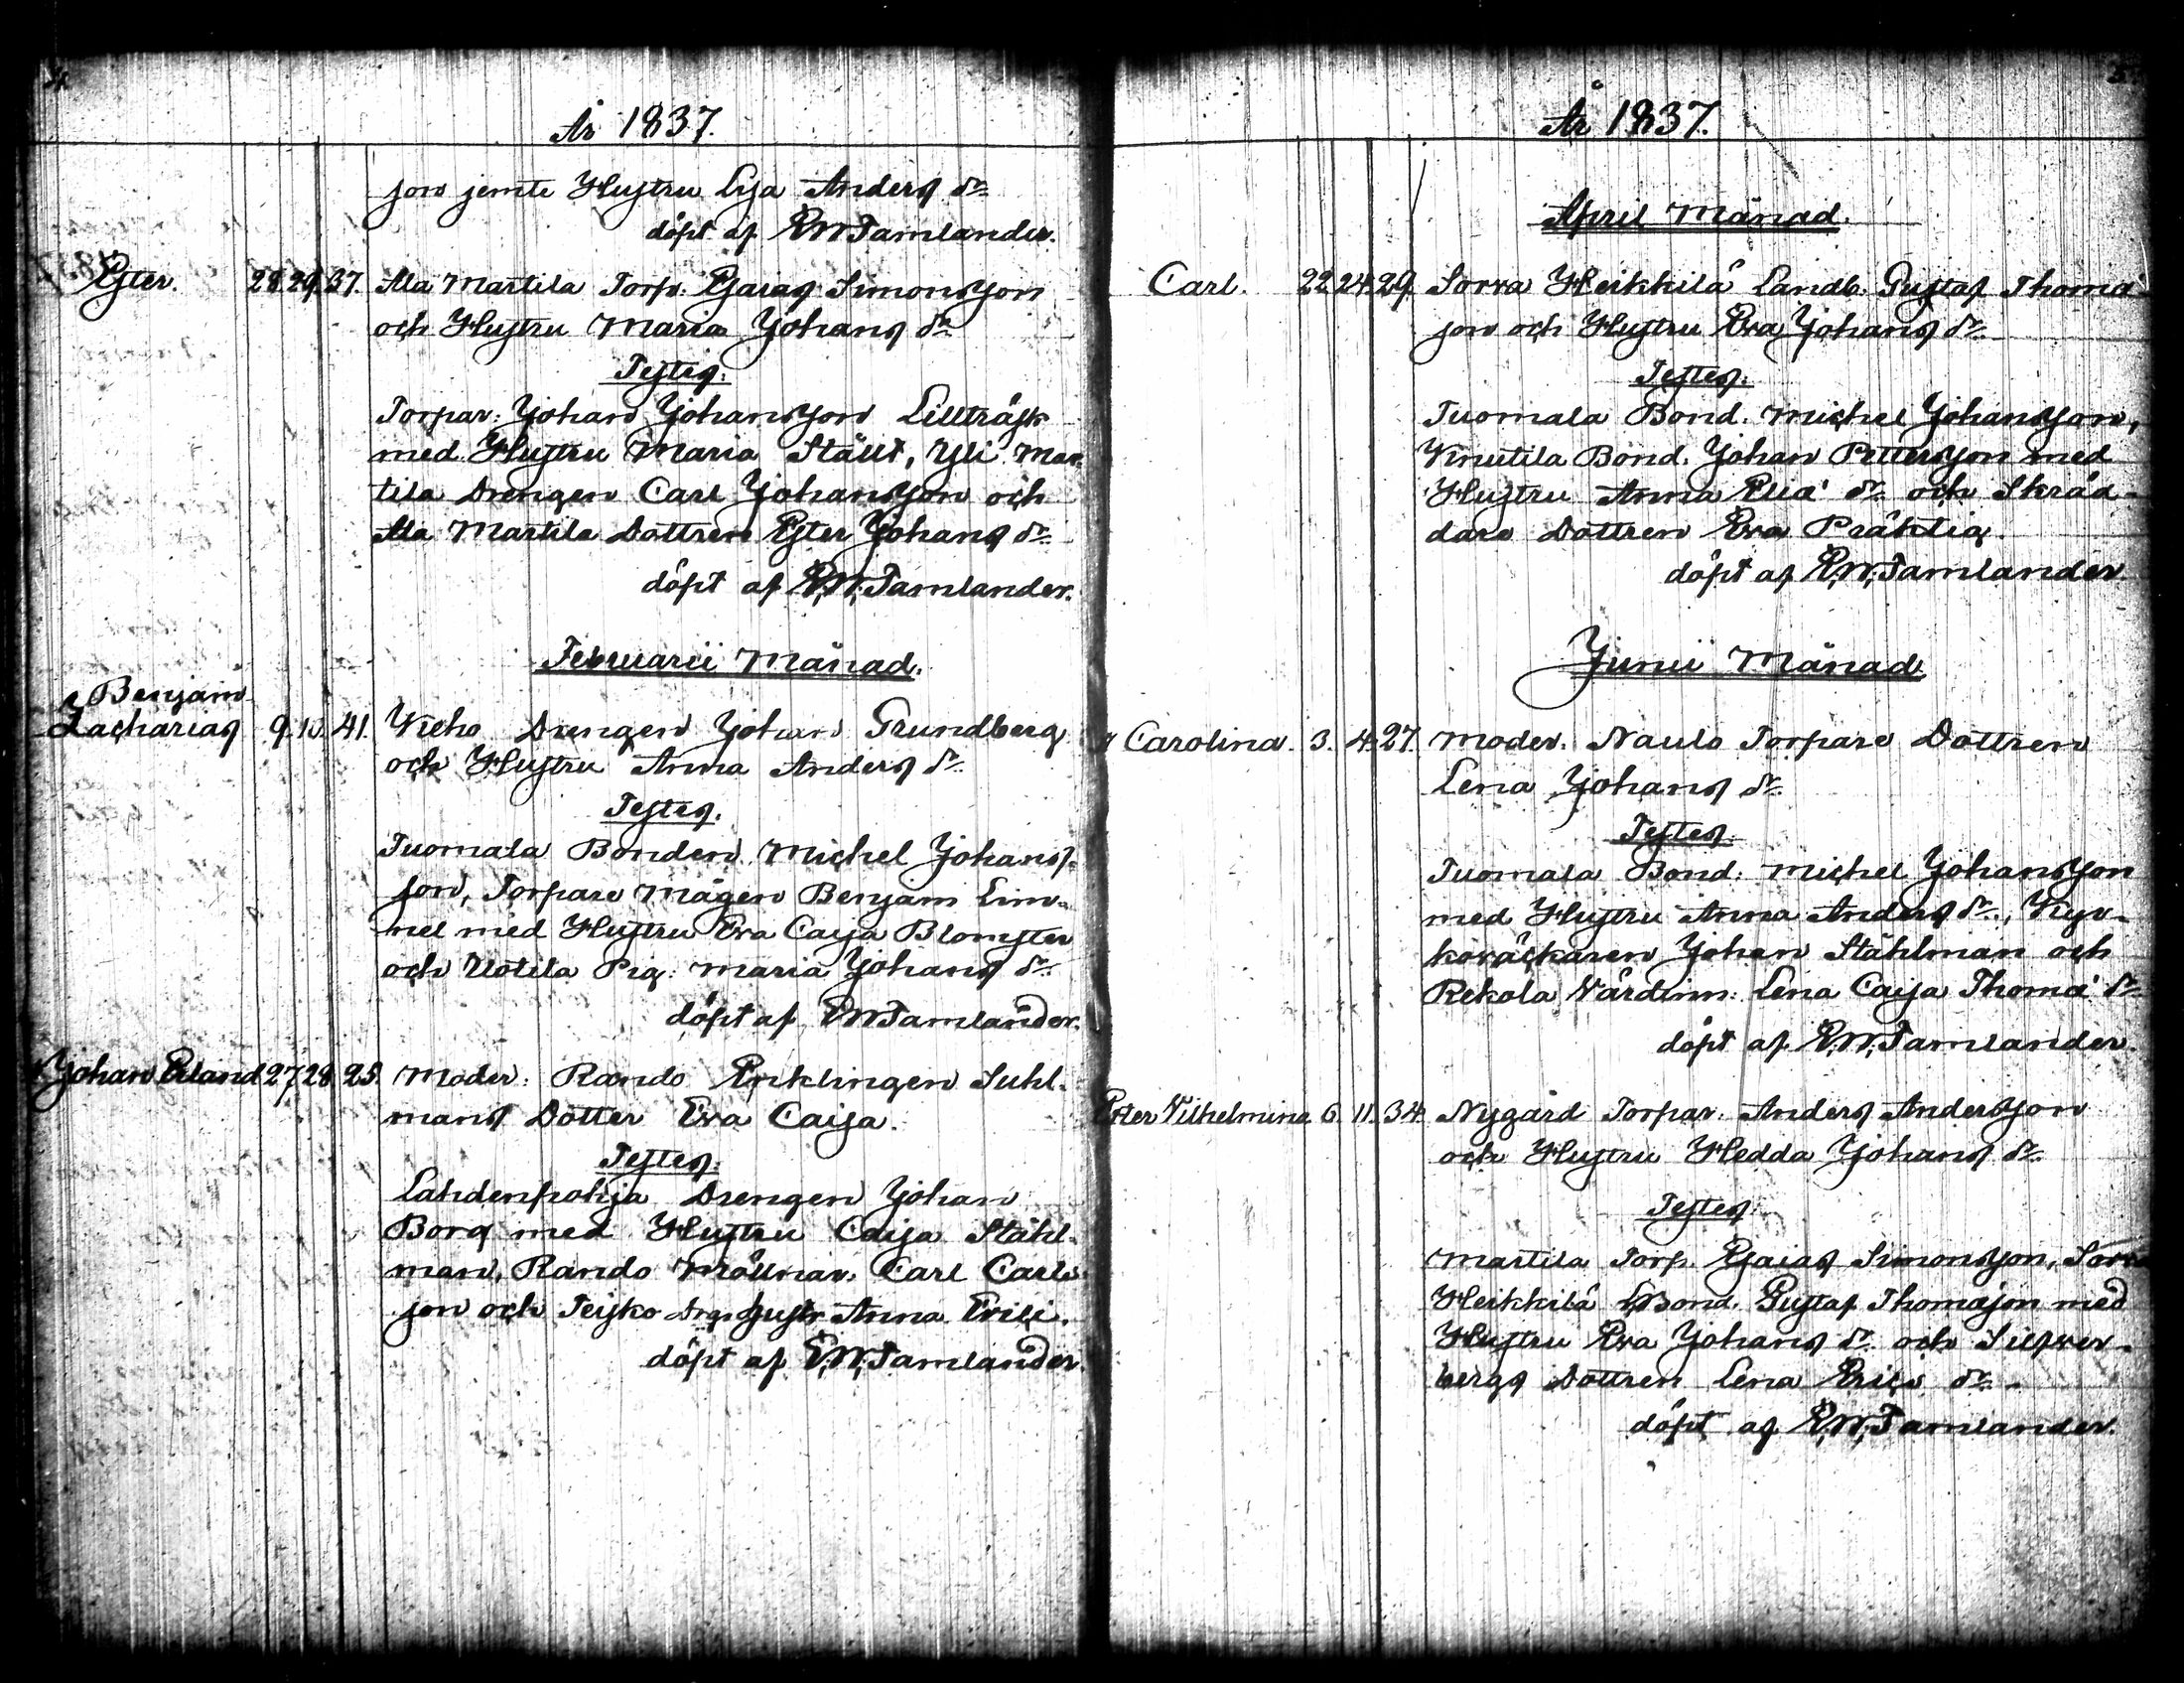 År 1837.
son jemte Hustru Lisa Anders dr
döpt af E.W.Tamlander.
Ester. 28. 29. 37. Ala Martila Torp: Esaias Simonsson
och Hustru Maria Johans dr
Testes:
Torpar: Johan Johansson Lillträsk
med Hustru Maria Ståhl, Yli Mar-
tila Drengen Carl Johansson och
Ala Martila Dottren Ester Johans dr
döpt af E.W.Tamlander.
Februarii Månad.
Benjam
Zacharias 9. 10. 41. Drengen Johan Grundberg
och Hustru Anna Anders dr
Testes.
Tuomala Bonden Michel Johans-
son, Torpare Mågen Benjam Lin-
nel med Hustru Eva Caisa Blomster
och Uotila Pig: Maria Johans dr
döpt af E.W.Tamlander.
Johan Erland 27. 28. 25. Moder: Rando Enklingen Suhl-
mans Dotter Eva Caisa.
Testes:
Lahdenpohja Drengen Johan
Borg med Hustru Caisa Ståhl-
man, Rando Möllnar: Carl Carls-
son och Teisko Drgs Hustr Anna Erici.
döpt af E.W.Tamlander.
År 1837.
April Månad.
Carl. 22. 24. 29. Sorva Heikkilä Landb: Gustaf Thomæ
son och Hustru Eva Johans dr
Testes:
Tuomala Bond. Michel Johansson,
Knutila Bond. Johan Pettersson med
Hustru Anna Eliæ dr och Skräd-
dare Dottren Eva Präktig.
döpt af E.W.Tamlander
Junii Månad
Carolina. 3. 4. 27. Moder. Naulo Torpare Dottren
Lena Johans dr
Testes
Tuomala Bond: Michel Johansson
med Hustru Anna Anders dr, Kyr-
koväckaren Johan Ståhlman och
Rekola Värdinn: Lena Caisa Thomæ dr
döpt af E.W.Tamlander.
Ester Vilhelmina 6. 11. 34. Nygård Torpar: Anders Andersson
och Hustru Hedda Johans dr
Testes
Martila Torp. Esaias Simonsson, Sorva
Heikkilä Bond. Gustaf Thomæson med
Hustru Eva Johans dr och Silfver-
bergs Dottren Lena Erici dr
döpt af E.W.Tamlander.